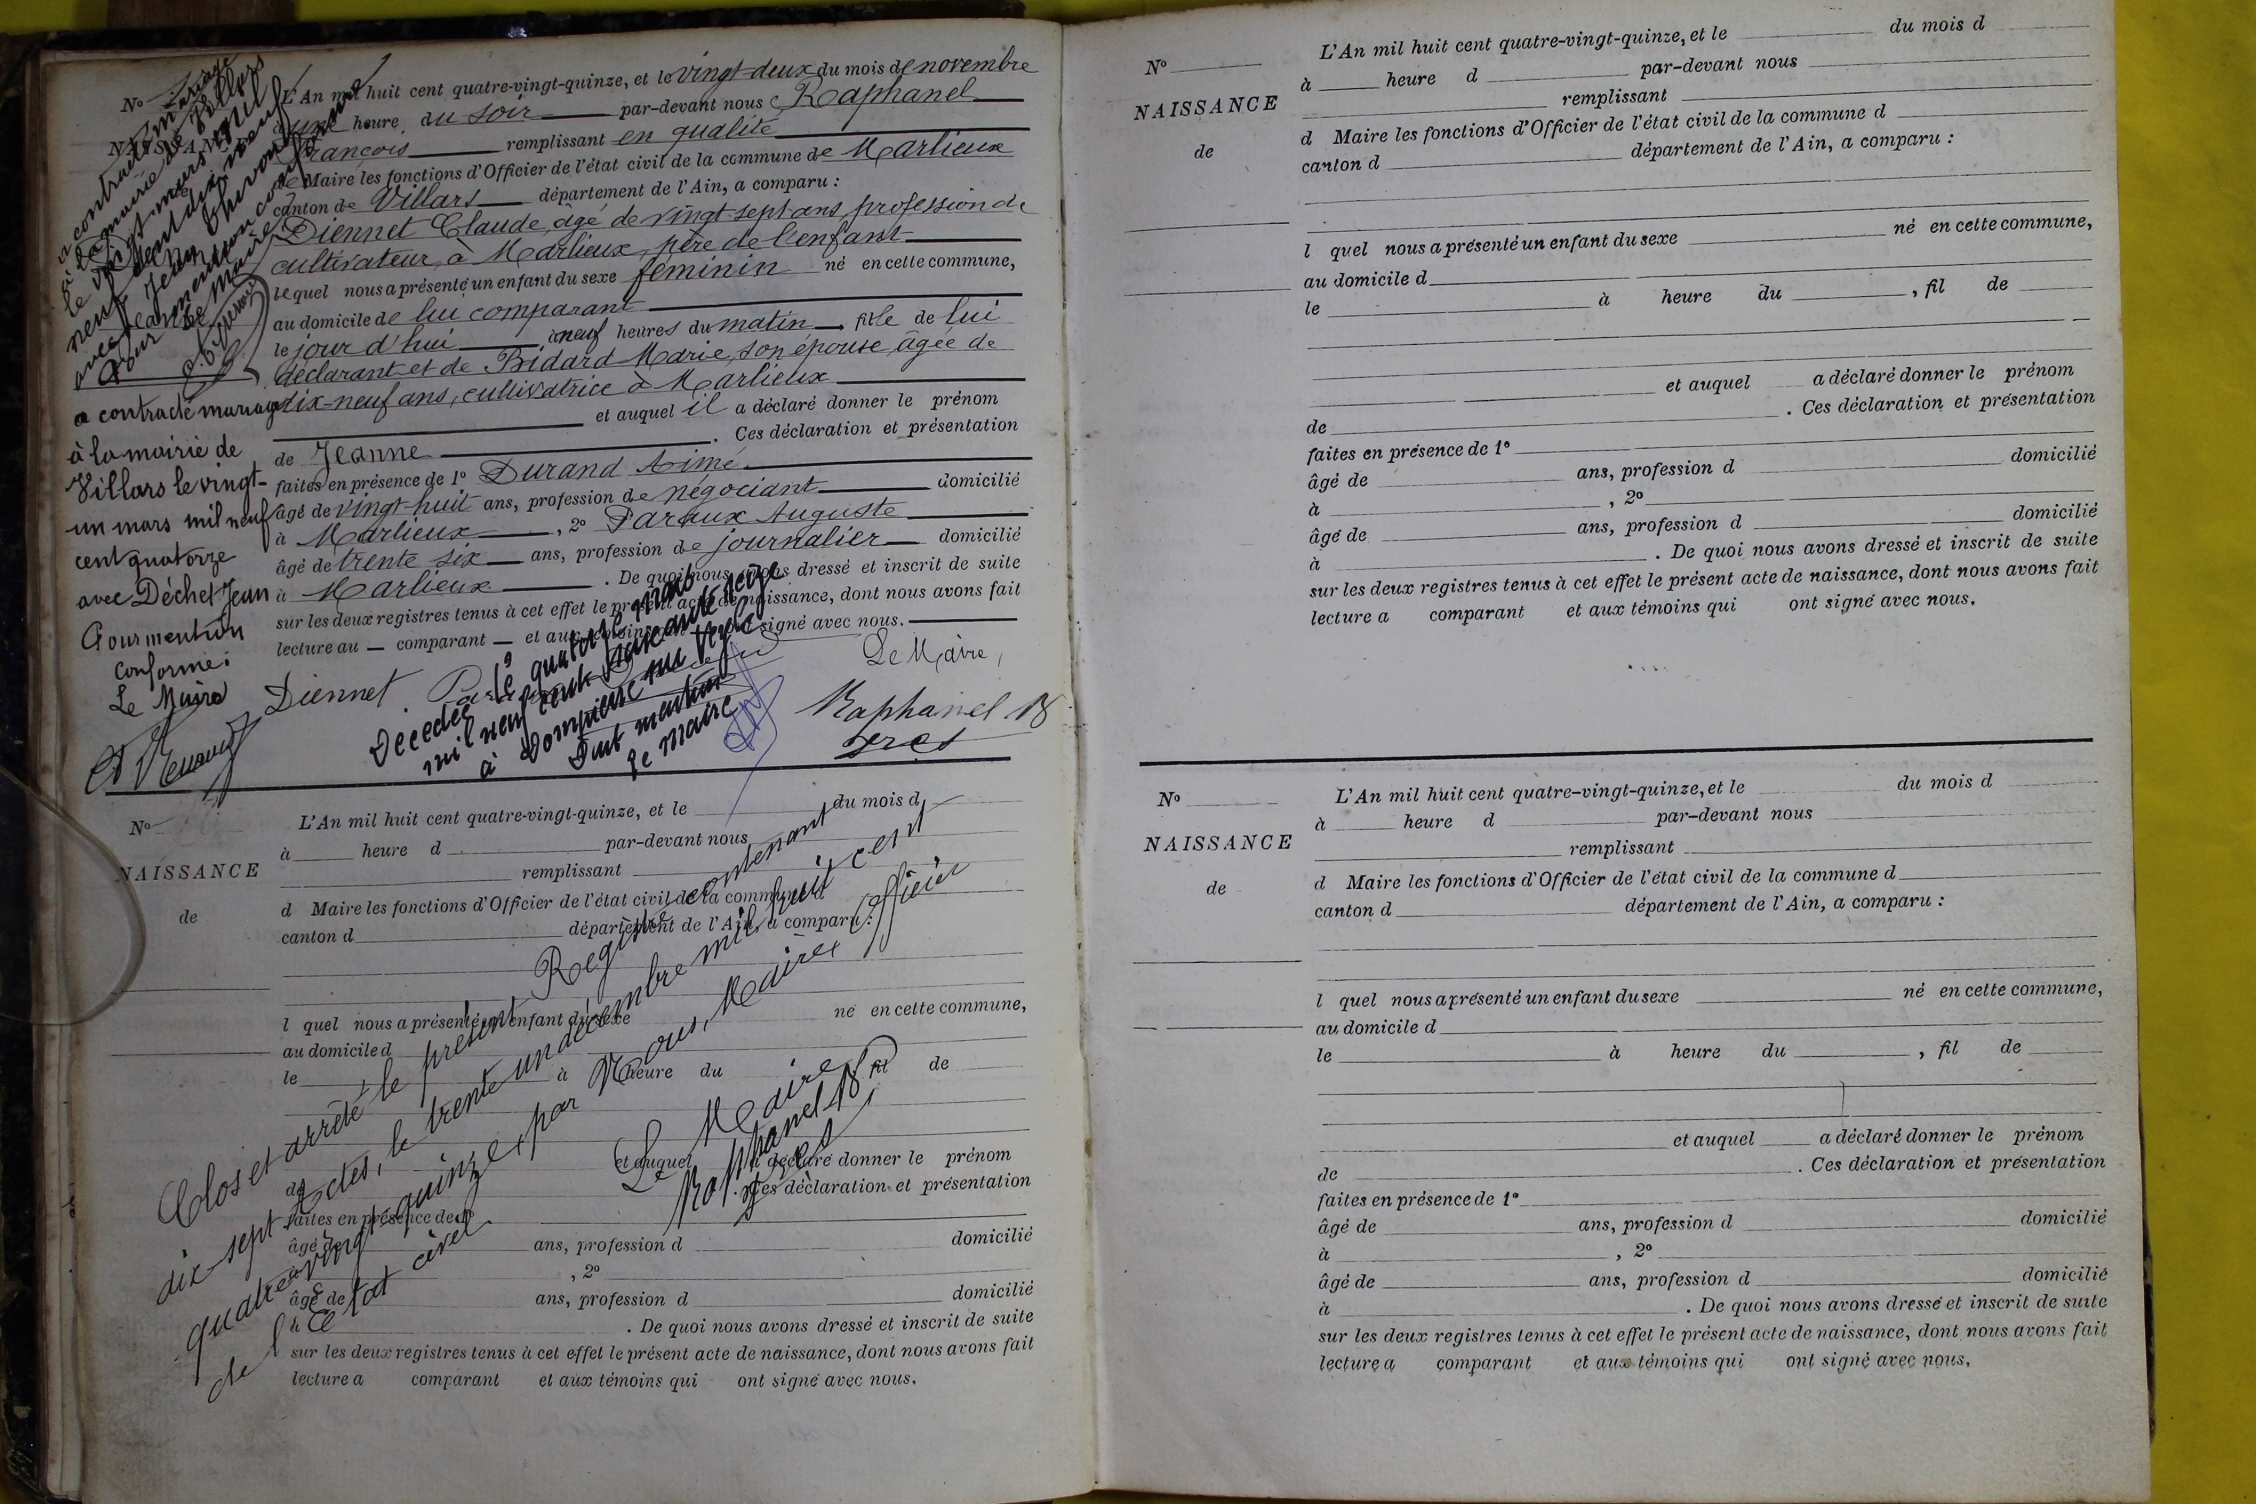 L'An mil huit cent quatre-vingt-quinze, et le vingt-deux du mois de novembre
à une heure du soir par-devant nous Raphanel
François remplissant en qualité
de Maire les fonctions d'Officier de l'état civil de la commune de Marlieux
canton de Villars département de l'Ain, a comparu :
Diennet Claude, âgé de vingt sept ans, profession de
cultivateur, à Marlieux, père de l'enfant
lequel nous a présenté un enfant du sexe féminin né en cette commune,
au domicile de lui comparant
le jour d'hui à neuf heures du matin, fille de lui
déclarant et de Bidard Marie, son épouse, âgée de
dix-neuf ans, cultivatrice à Marlieux
et auquel il a déclaré donner le prénom
de Jeanne. Ces déclaration et présentation
faites en présence de 1º Durand Aimé
âgé de vingt huit ans, profession de négociant domicilié
à Marlieux, 2º Auguste
âgé de trente six ans, profession de journalier domicilié
à Marlieux. De quoi nous avons dressé et inscrit de suite
sur les deux registres tenus à cet effet le présent acte de naissance, dont nous avons fait
lecture au comparant et aux signé avec nous.
Le Maire,
Diennet.
Raphanel
Nº
NAISSANCE
a contracté mariage
à la mairie de Villars
le vingt mars mil
neuf cent dix neuf
avec Jean
Pour mention conforme
Le Maire
a contracté mariage
à la mairie de
Villars le vingt-
un mars mil neuf
cent quatorze
avec Déchet Jean
Pour mention
conforme :
Le Maire
Décédée le quatorze
mil neuf cent soixante seize
à Dompierre sur Veyle
Dont mention
le Maire
Nº
NAISSANCE
de
L'An mil huit cent quatre-vingt-quinze, et le du mois d
à heure d par-devant nous
remplissant
d Maire les fonctions d'Officier de l'état civil de la commune d
canton d département de l'Ain, a comparu :
l quel nous a présenté un enfant du sexe né en cette commune,
au domicile d
le à heure du fil de
et auquel a déclaré donner le prénom
de . Ces déclaration et présentation
faites en présence de 1º
âgé de ans, profession d domicilié
à , 2º
âgé de ans, profession d domicilié
à . De quoi nous avons dressé et inscrit de suite
sur les deux registres tenus à cet effet le présent acte de naissance, dont nous avons fait
lecture a comparant et aux témoins qui ont signé avec nous.
Clos et arrêté le présent Registre contenant
dix-sept actes, le trente un décembre mil huit cent
quatre-vingt-quinze, par Nous, Maire et Officier
de l'Etat civil
Le Maire
Raphanel
Nº
NAISSANCE
de
L'An mil huit cent quatre-vingt-quinze, et le du mois d
à heure d par-devant nous
remplissant
d Maire les fonctions d'Officier de l'état civil de la commune d
canton d département de l'Ain, a comparu :
l quel nous a présenté un enfant du sexe né en cette commune,
au domicile d
le à heure du , fil de
et auquel a déclaré donner le prénom
de . Ces déclaration et présentation
faites en présence de 1º
âgé de ans, profession d domicilié
à , 2º
âgé de ans, profession d domicilié
à . De quoi nous avons dressé et inscrit de suite
sur les deux registres tenus à cet effet le présent acte de naissance, dont nous avons fait
lecture a comparant et aux témoins qui ont signé avec nous.
Nº
NAISSANCE
de
L'An mil huit cent quatre-vingt-quinze, et le du mois d
à heure d par-devant nous
remplissant
d Maire les fonctions d'Officier de l'état civil de la commune d
canton d département de l'Ain, a comparu :
l quel nous a présenté un enfant du sexe né en cette commune,
au domicile d
le à heure du , fil de
et auquel a déclaré donner le prénom
de . Ces déclaration et présentation
faites en présence de 1º
âgé de ans, profession d domicilié
à , 2º
âgé de ans, profession d domicilié
à . De quoi nous avons dressé et inscrit de suite
sur les deux registres tenus à cet effet le présent acte de naissance, dont nous avons fait
lecture a comparant et aux témoins qui ont signé avec nous.